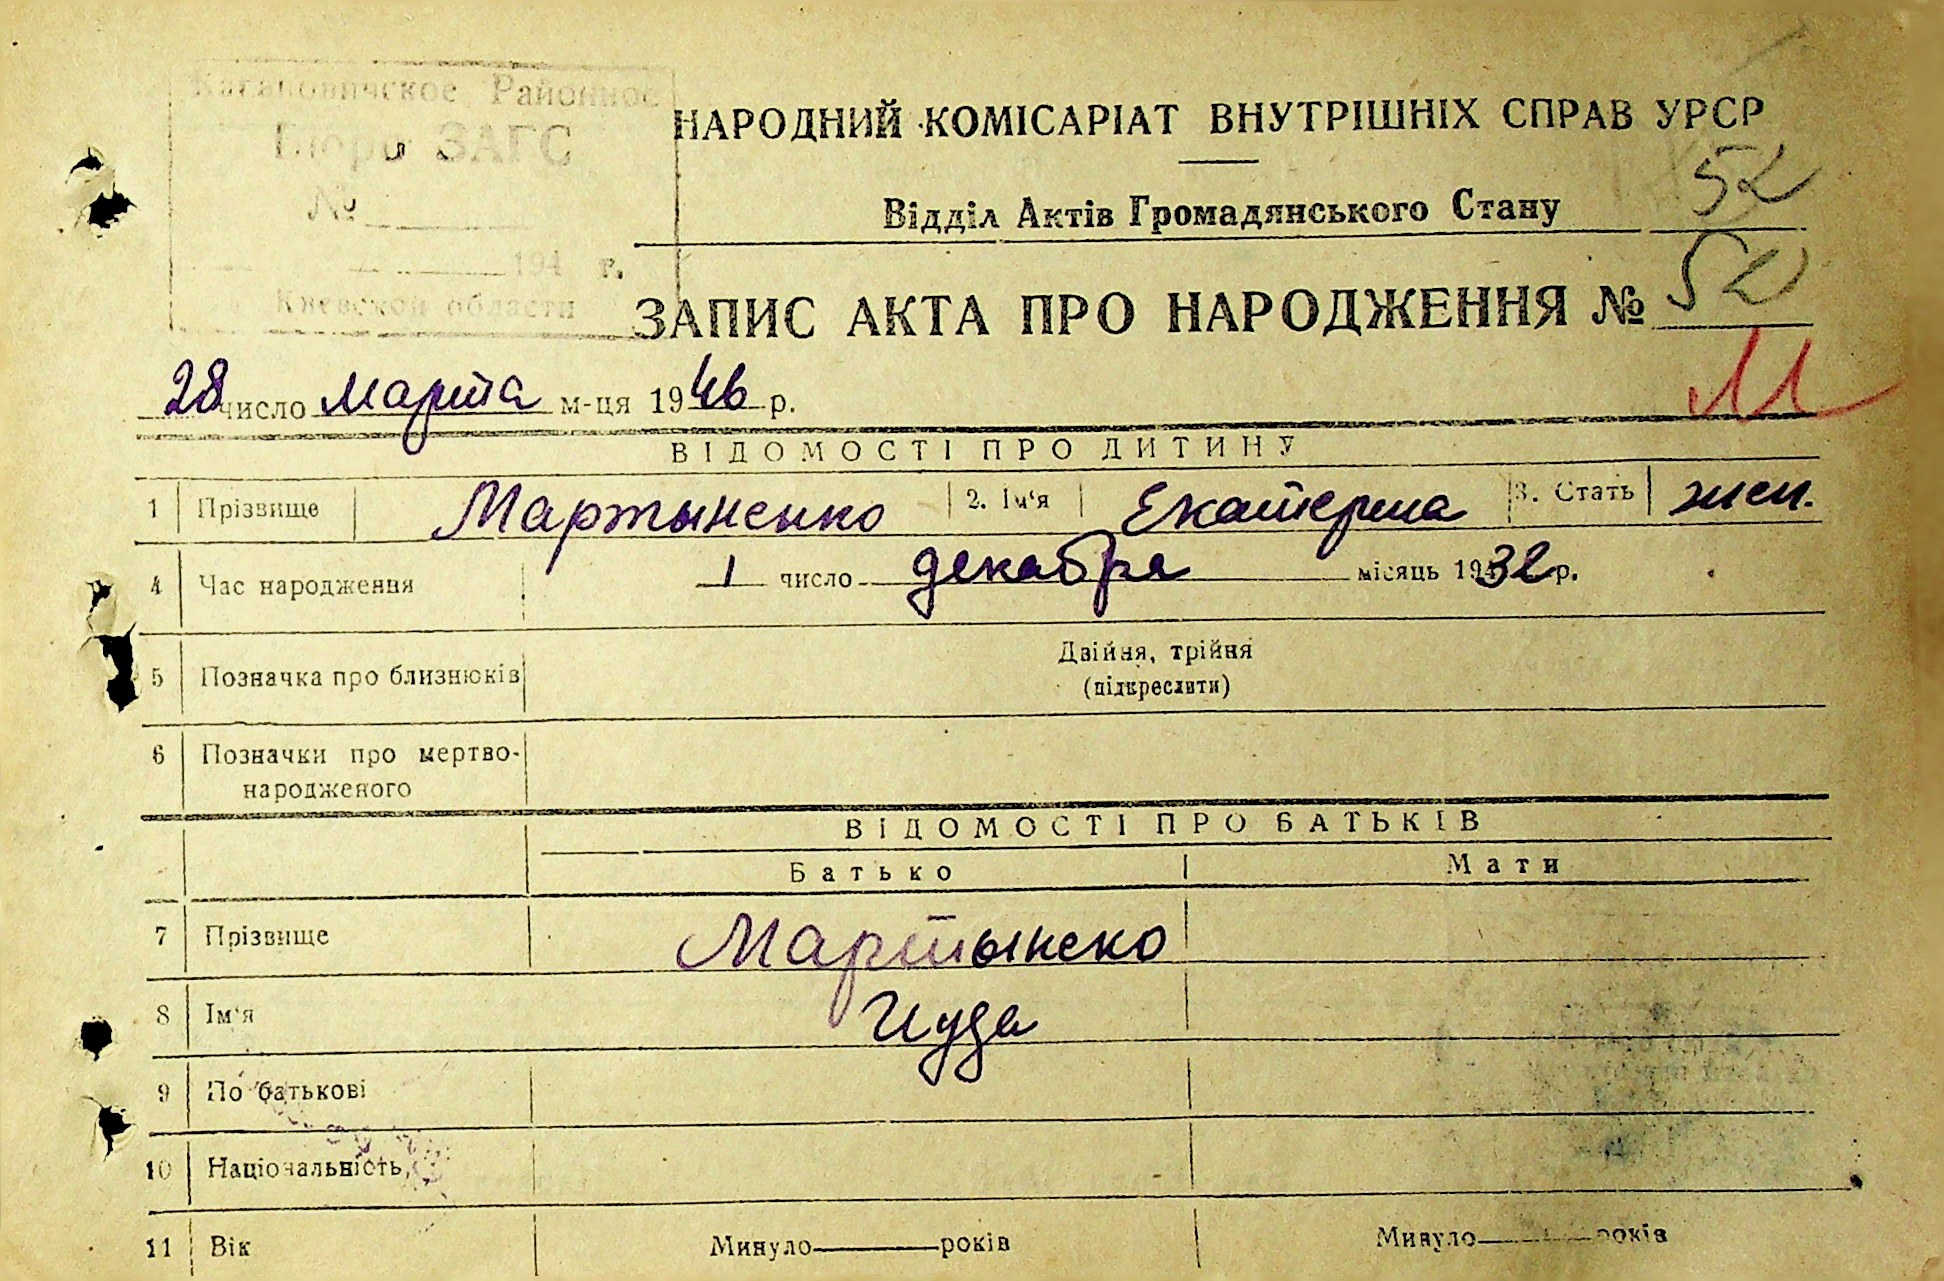 Кагановичское Районное
Бюро ЗАГС
№
194 г.
Киевской области
НАРОДНИЙ КОМІСАРІАТ ВНУТРІШНІХ СПРАВ УРСР
Відділ Актів Громадянського Стану 52
ЗАПИС АКТА ПРО НАРОДЖЕННЯ № 52
28 число Марта м-ця 1946 р.
ВІДОМОСТІ ПРО ДИТИНУ
1 Прізвище Мартыненко 2. Ім'я Екатерина 3. Стать жен.
4 Час народження 1 число декабря місяць 1932 р.
5 Позначка про близнюків Двійня, трійня
(підкреслити)
6 Позначки про мертво-
народженого
ВІДОМОСТІ ПРО БАТЬКІВ
Батько Мати
7 Прізвище Мартынеко
8 Ім'я Иуда
9 По батькові
10 Національність
11 Вік Минуло років Минуло років